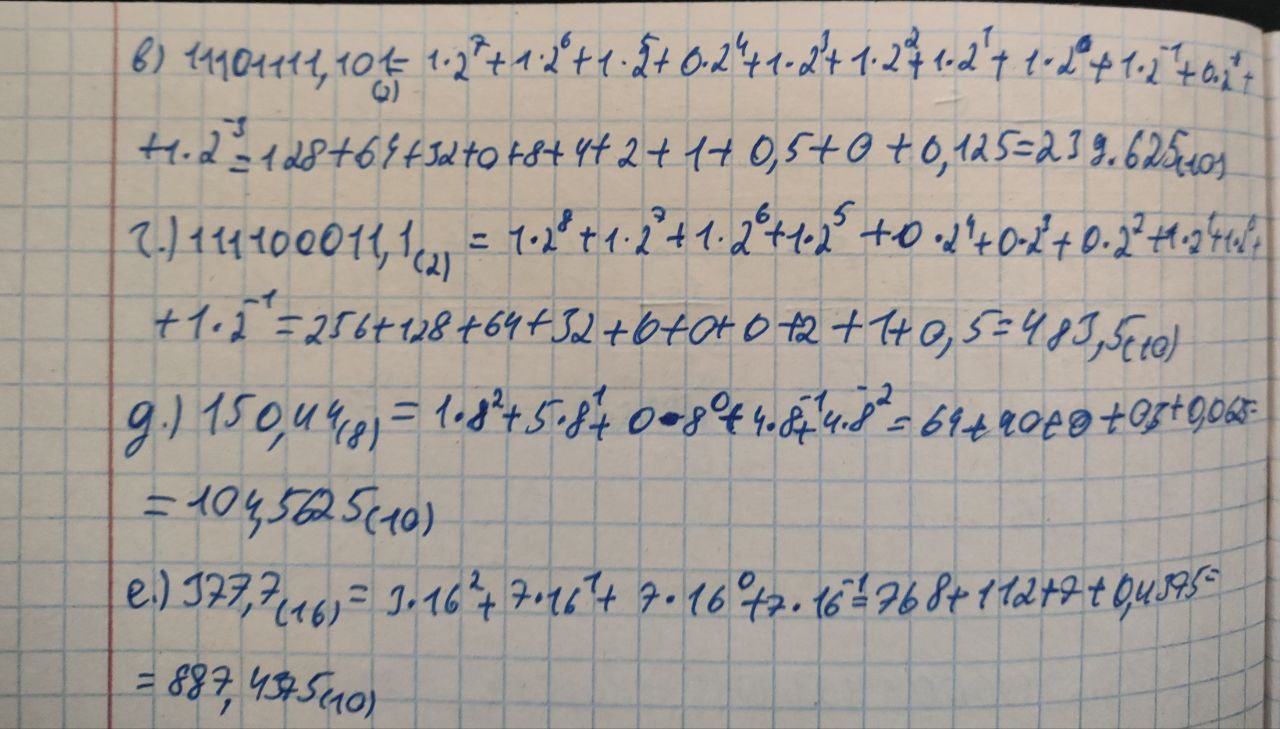 в) 11101111,101₍₂₎ = 1·2⁷+1·2⁶+1·2⁵+0·2⁴+1·2³+1·2²+1·2¹+1·2⁰+1·2⁻¹+0·2⁻¹+
+1·2⁻³=128+64+32+0+8+4+2+1+0,5+0+0,125=239.625₍₁₀₎
г.) 111100011,1₍₂₎ = 1·2⁸+1·2⁷+1·2⁶+1·2⁵+0·2⁴+0·2³+0·2²+1·2¹+1·2⁰+
+1·2⁻¹=256+128+64+32+0+0+0+2+1+0,5=483,5₍₁₀₎
д.) 150,44₍₈₎ = 1·8²+5·8¹+0·8⁰+4·8⁻¹+4·8⁻²=64+40+0+0,5+0,065=
=104,5625₍₁₀₎
е.) 377,7₍₁₆₎ = 3·16²+7·16¹+7·16⁰+7·16⁻¹=768+112+7+0,4375=
=887,4375₍₁₀₎